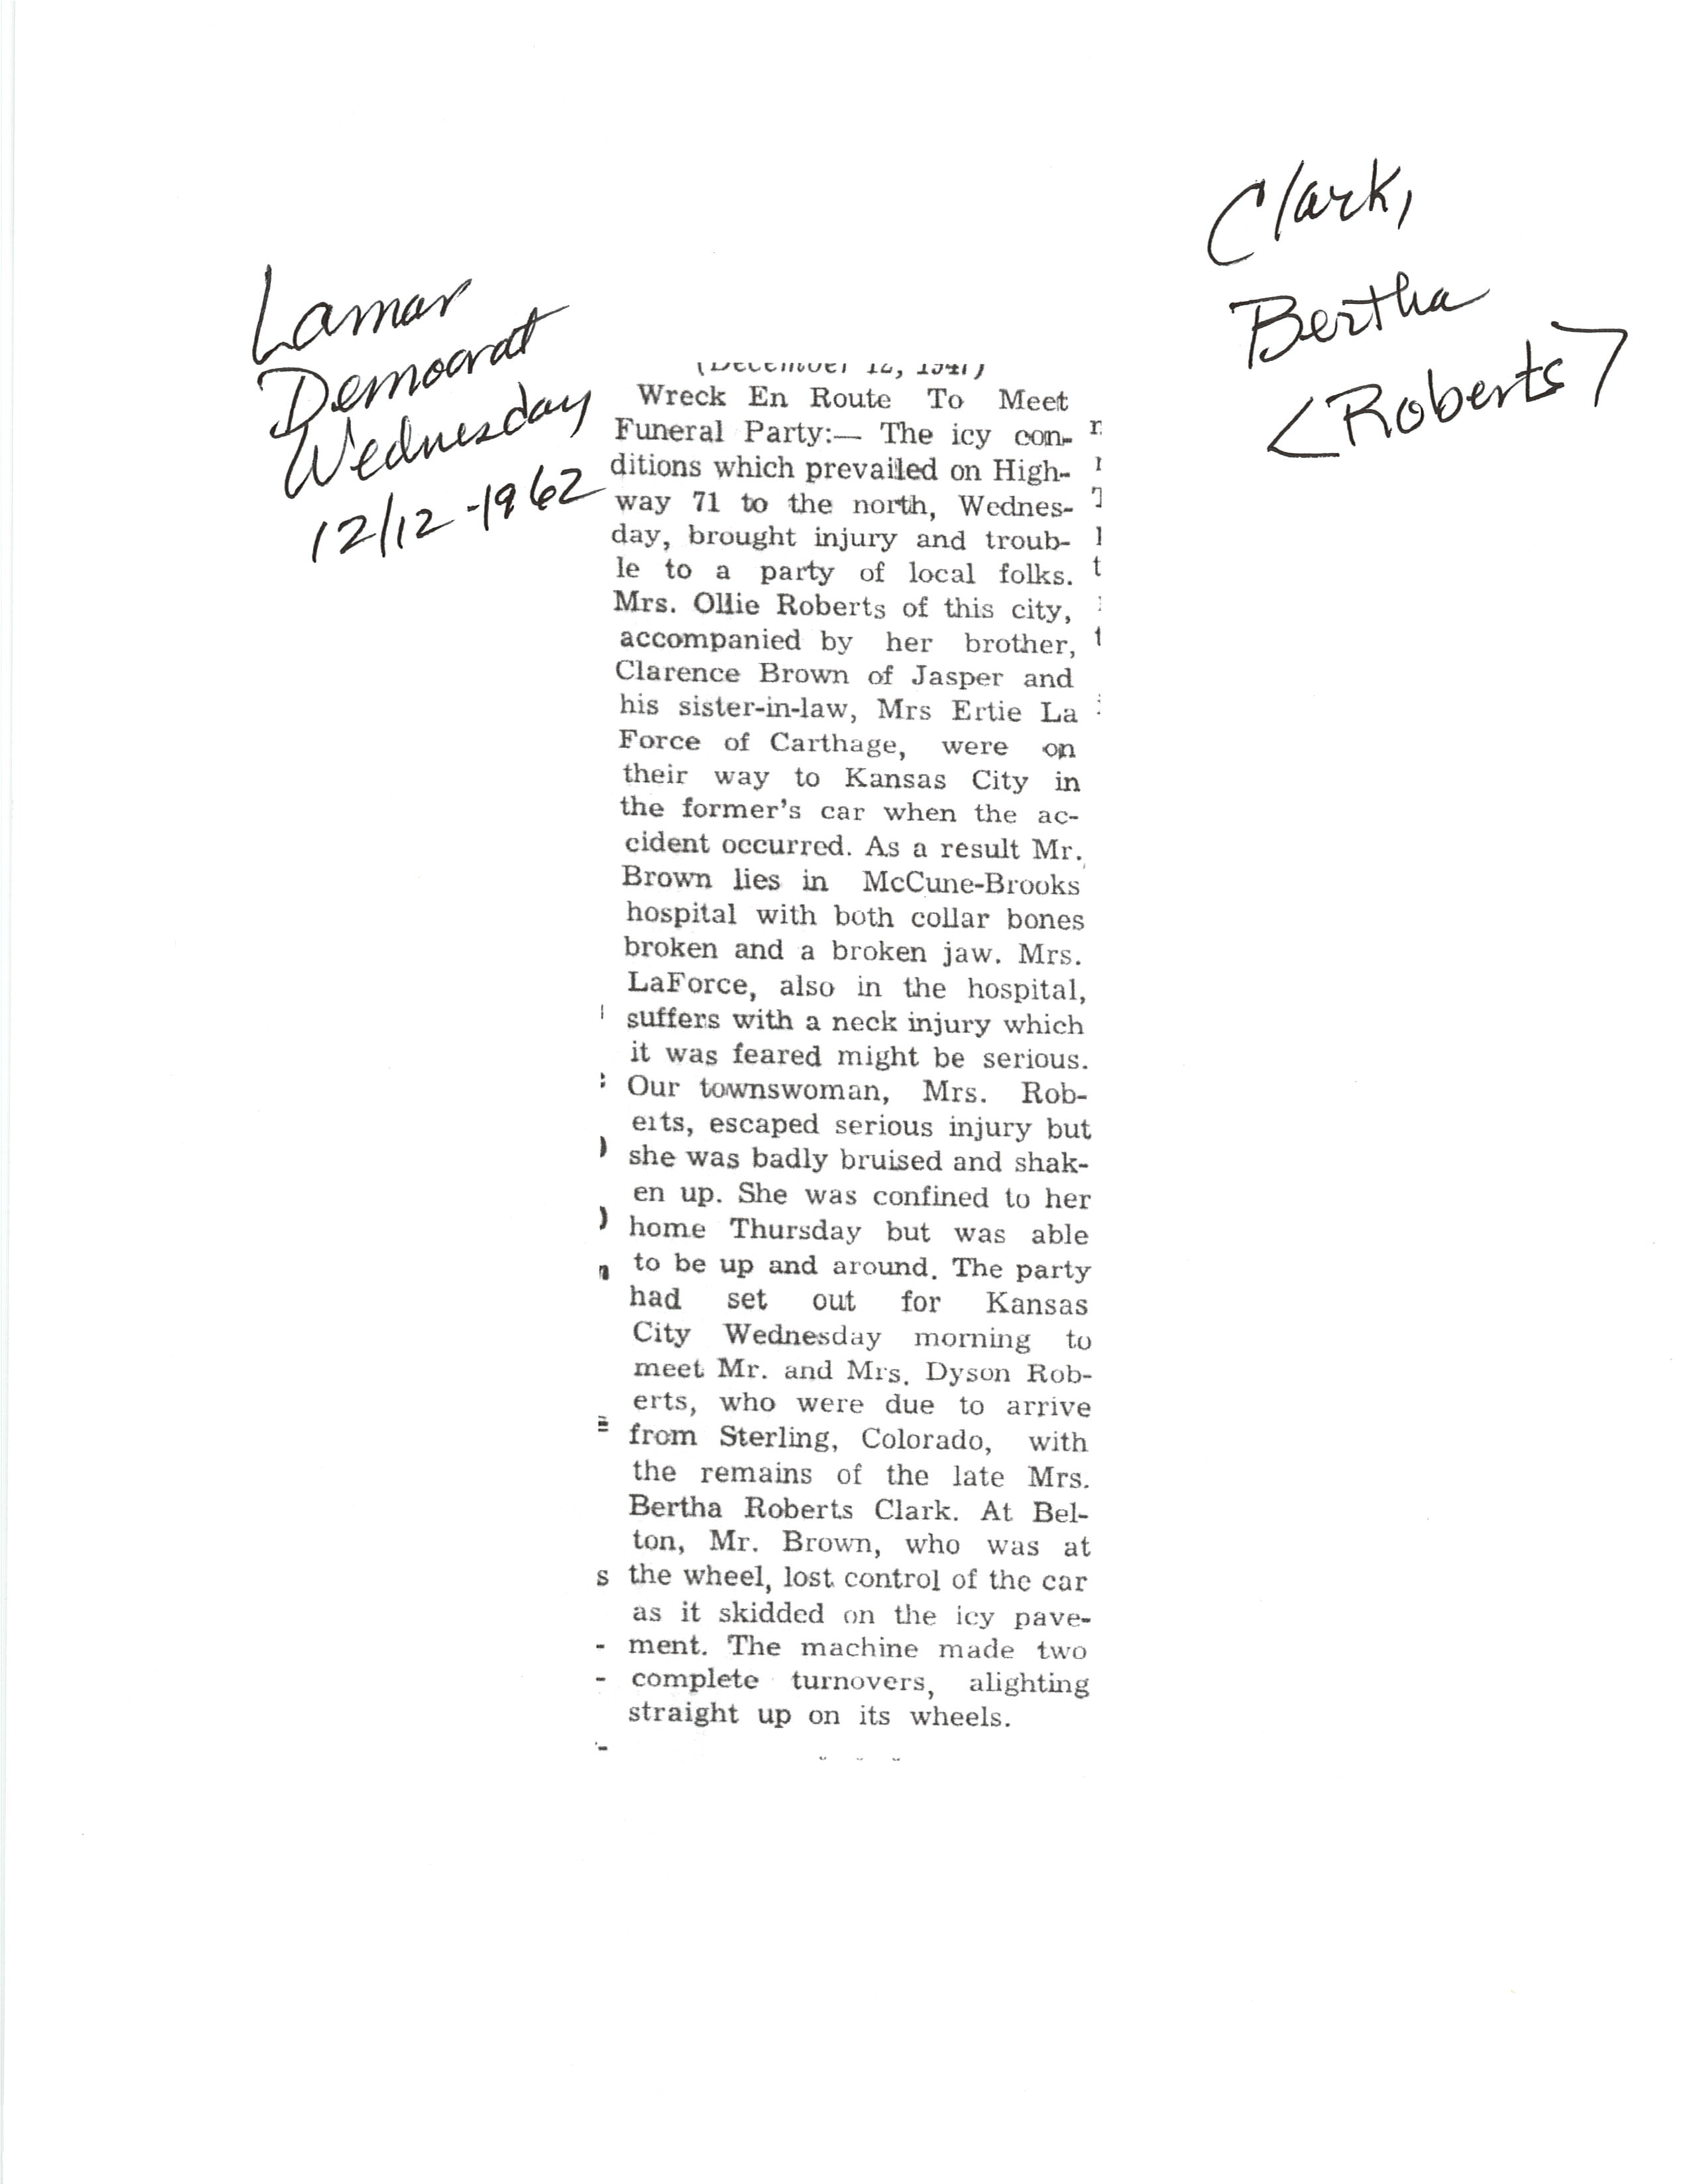 Clark,
Bertha
<Roberts>
Lamar
Democrat
Wednesday
12/12-1962
Wreck En Route To Meet
Funeral Party:— The icy con-
ditions which prevailed on High-
way 71 to the north, Wednes-
day, brought injury and troub-
le to a party of local folks.
Mrs. Ollie Roberts of this city,
accompanied by her brother,
Clarence Brown of Jasper and
his sister-in-law, Mrs Ertie La
Force of Carthage, were on
their way to Kansas City in
the former's car when the ac-
cident occurred. As a result Mr.
Brown lies in McCune-Brooks
hospital with both collar bones
broken and a broken jaw. Mrs.
LaForce, also in the hospital,
suffers with a neck injury which
it was feared might be serious.
Our townswoman, Mrs. Rob-
erts, escaped serious injury but
she was badly bruised and shak-
en up. She was confined to her
home Thursday but was able
to be up and around. The party
had set out for Kansas
City Wednesday morning to
meet Mr. and Mrs. Dyson Rob-
erts, who were due to arrive
from Sterling, Colorado, with
the remains of the late Mrs.
Bertha Roberts Clark. At Bel-
ton, Mr. Brown, who was at
the wheel, lost control of the car
as it skidded on the icy pave-
ment. The machine made two
complete turnovers, alighting
straight up on its wheels.